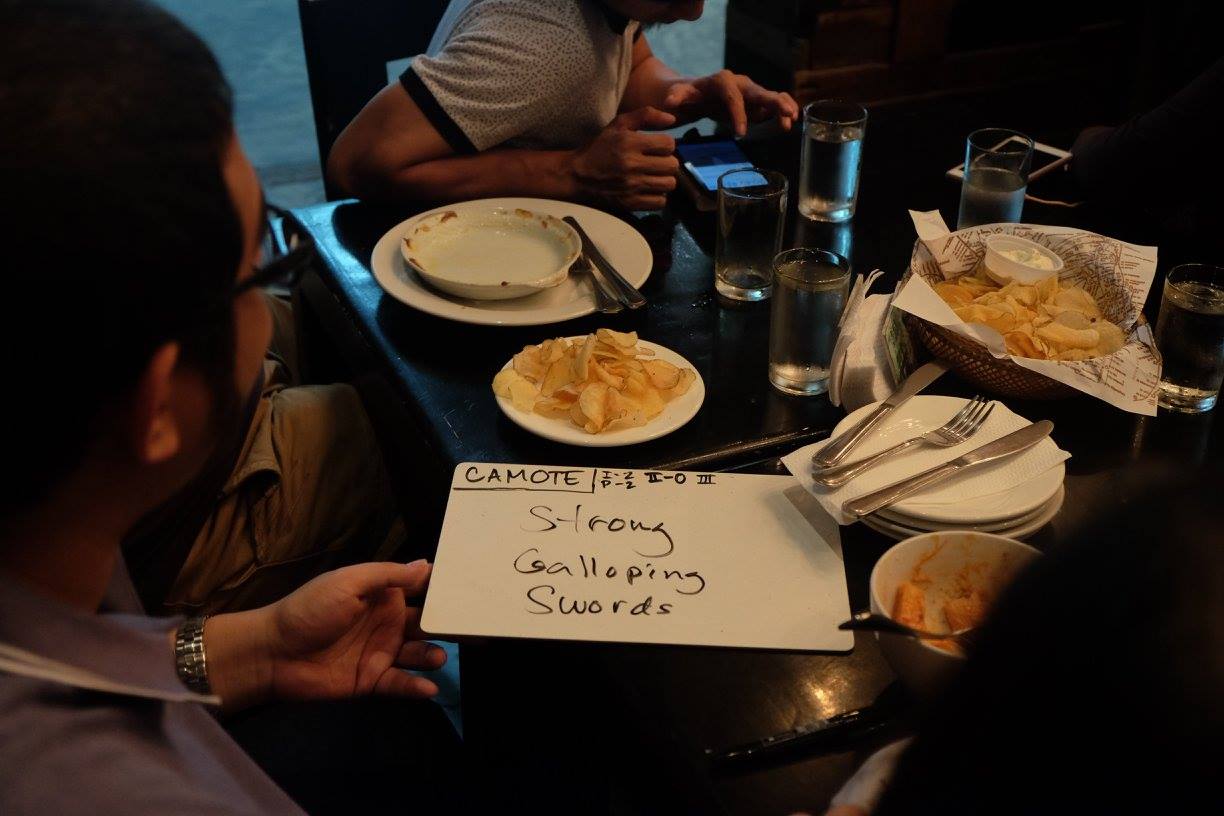 CAMOTE I-2 II-0 III
P-2
Strong
Galloping
Swords